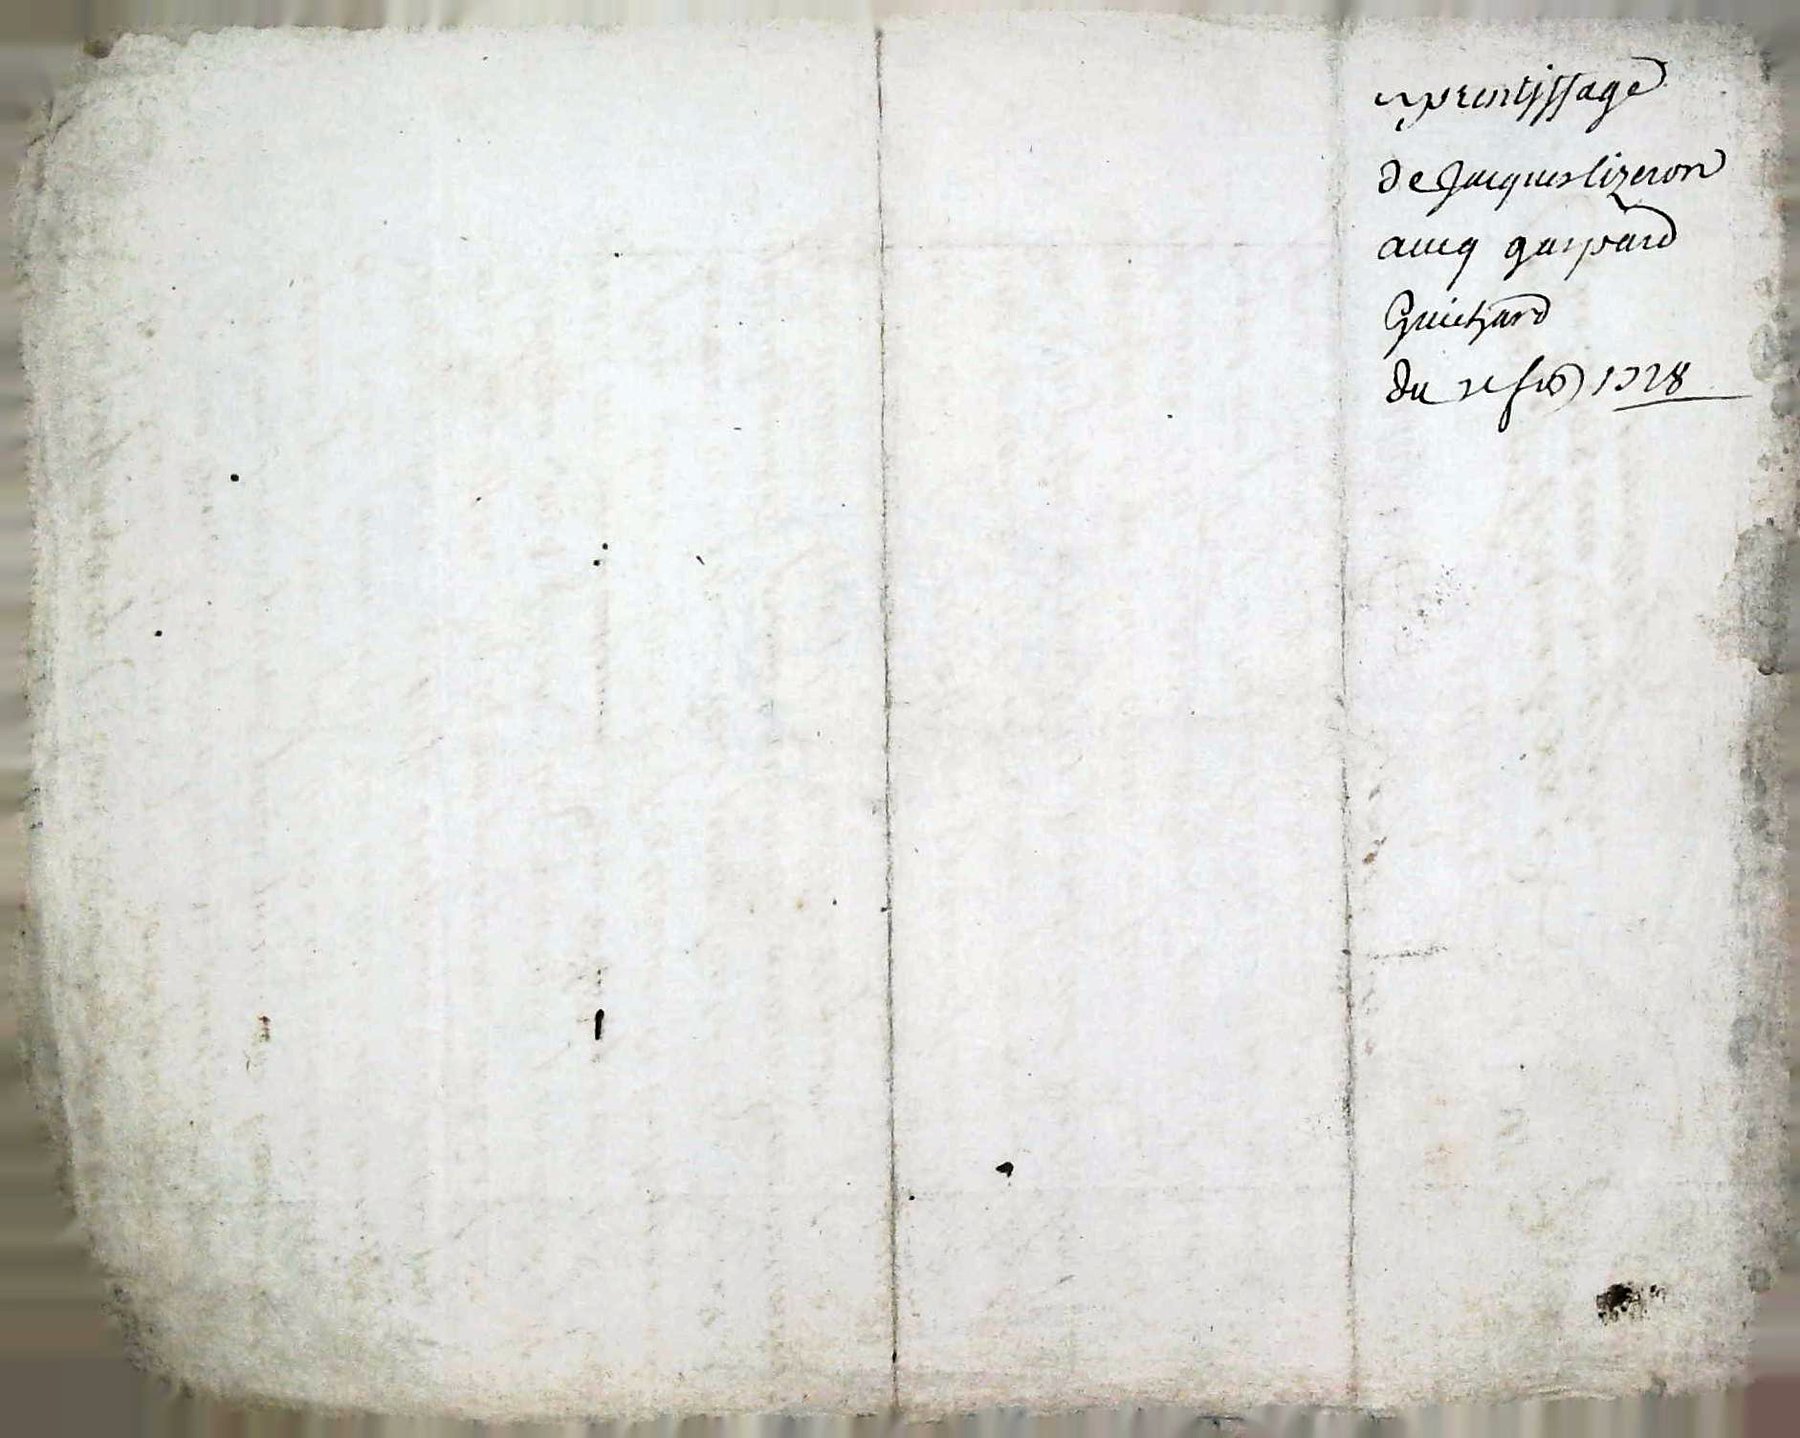 aprentissage
de Jacques lizeron
aueq gaspard
Guichard
du 2e 1728